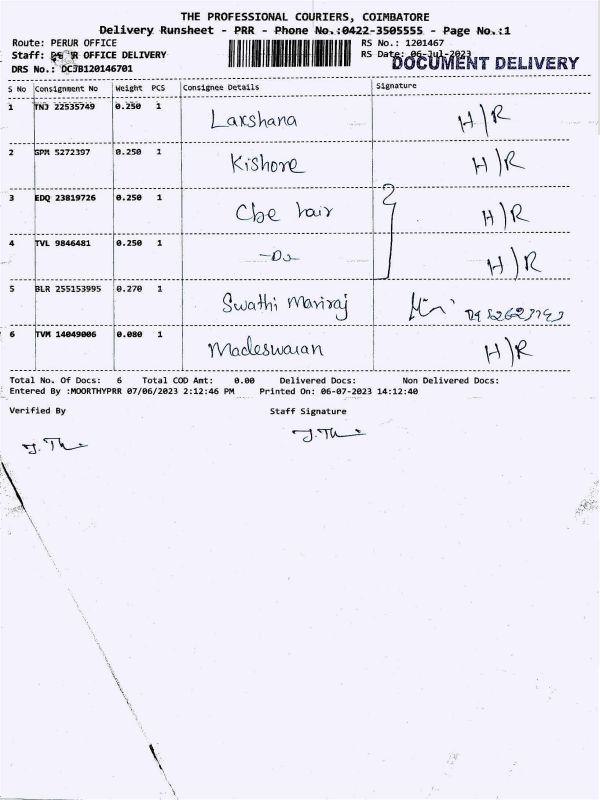 THE PROFESSIONAL COURIERS, COIMBATORE
Delivery Runsheet - PRR - Phone No.:0422-3505555 - Page No.:1
Route: PERUR OFFICE
RS No.: 1201467
Staff: PERUR OFFICE DELIVERY
RS Date: 06-Jul-2023
DOCUMENT DELIVERY
DRS No.: DCJB120146701
S No Consignment No Weight PCS Consignee Details Signature
1 TNJ 22535749 0.250 1 Lakshana H/R
2 GPM 5272397 0.250 1 Kishore H/R
3 EDQ 23819726 0.250 1 Cbe hair H/R
4 TVL 9846481 0.250 1 -Do H/R
5 BLR 255153995 0.270 1 Swathi Maniraj
6 TVM 14049006 0.080 1 Madeswaran H/R
Total No. Of Docs: 6 Total COD Amt: 0.00 Delivered Docs: Non Delivered Docs:
Entered By :MOORTHYPRR 07/06/2023 2:12:46 PM Printed On: 06-07-2023 14:12:40
Verified By Staff Signature